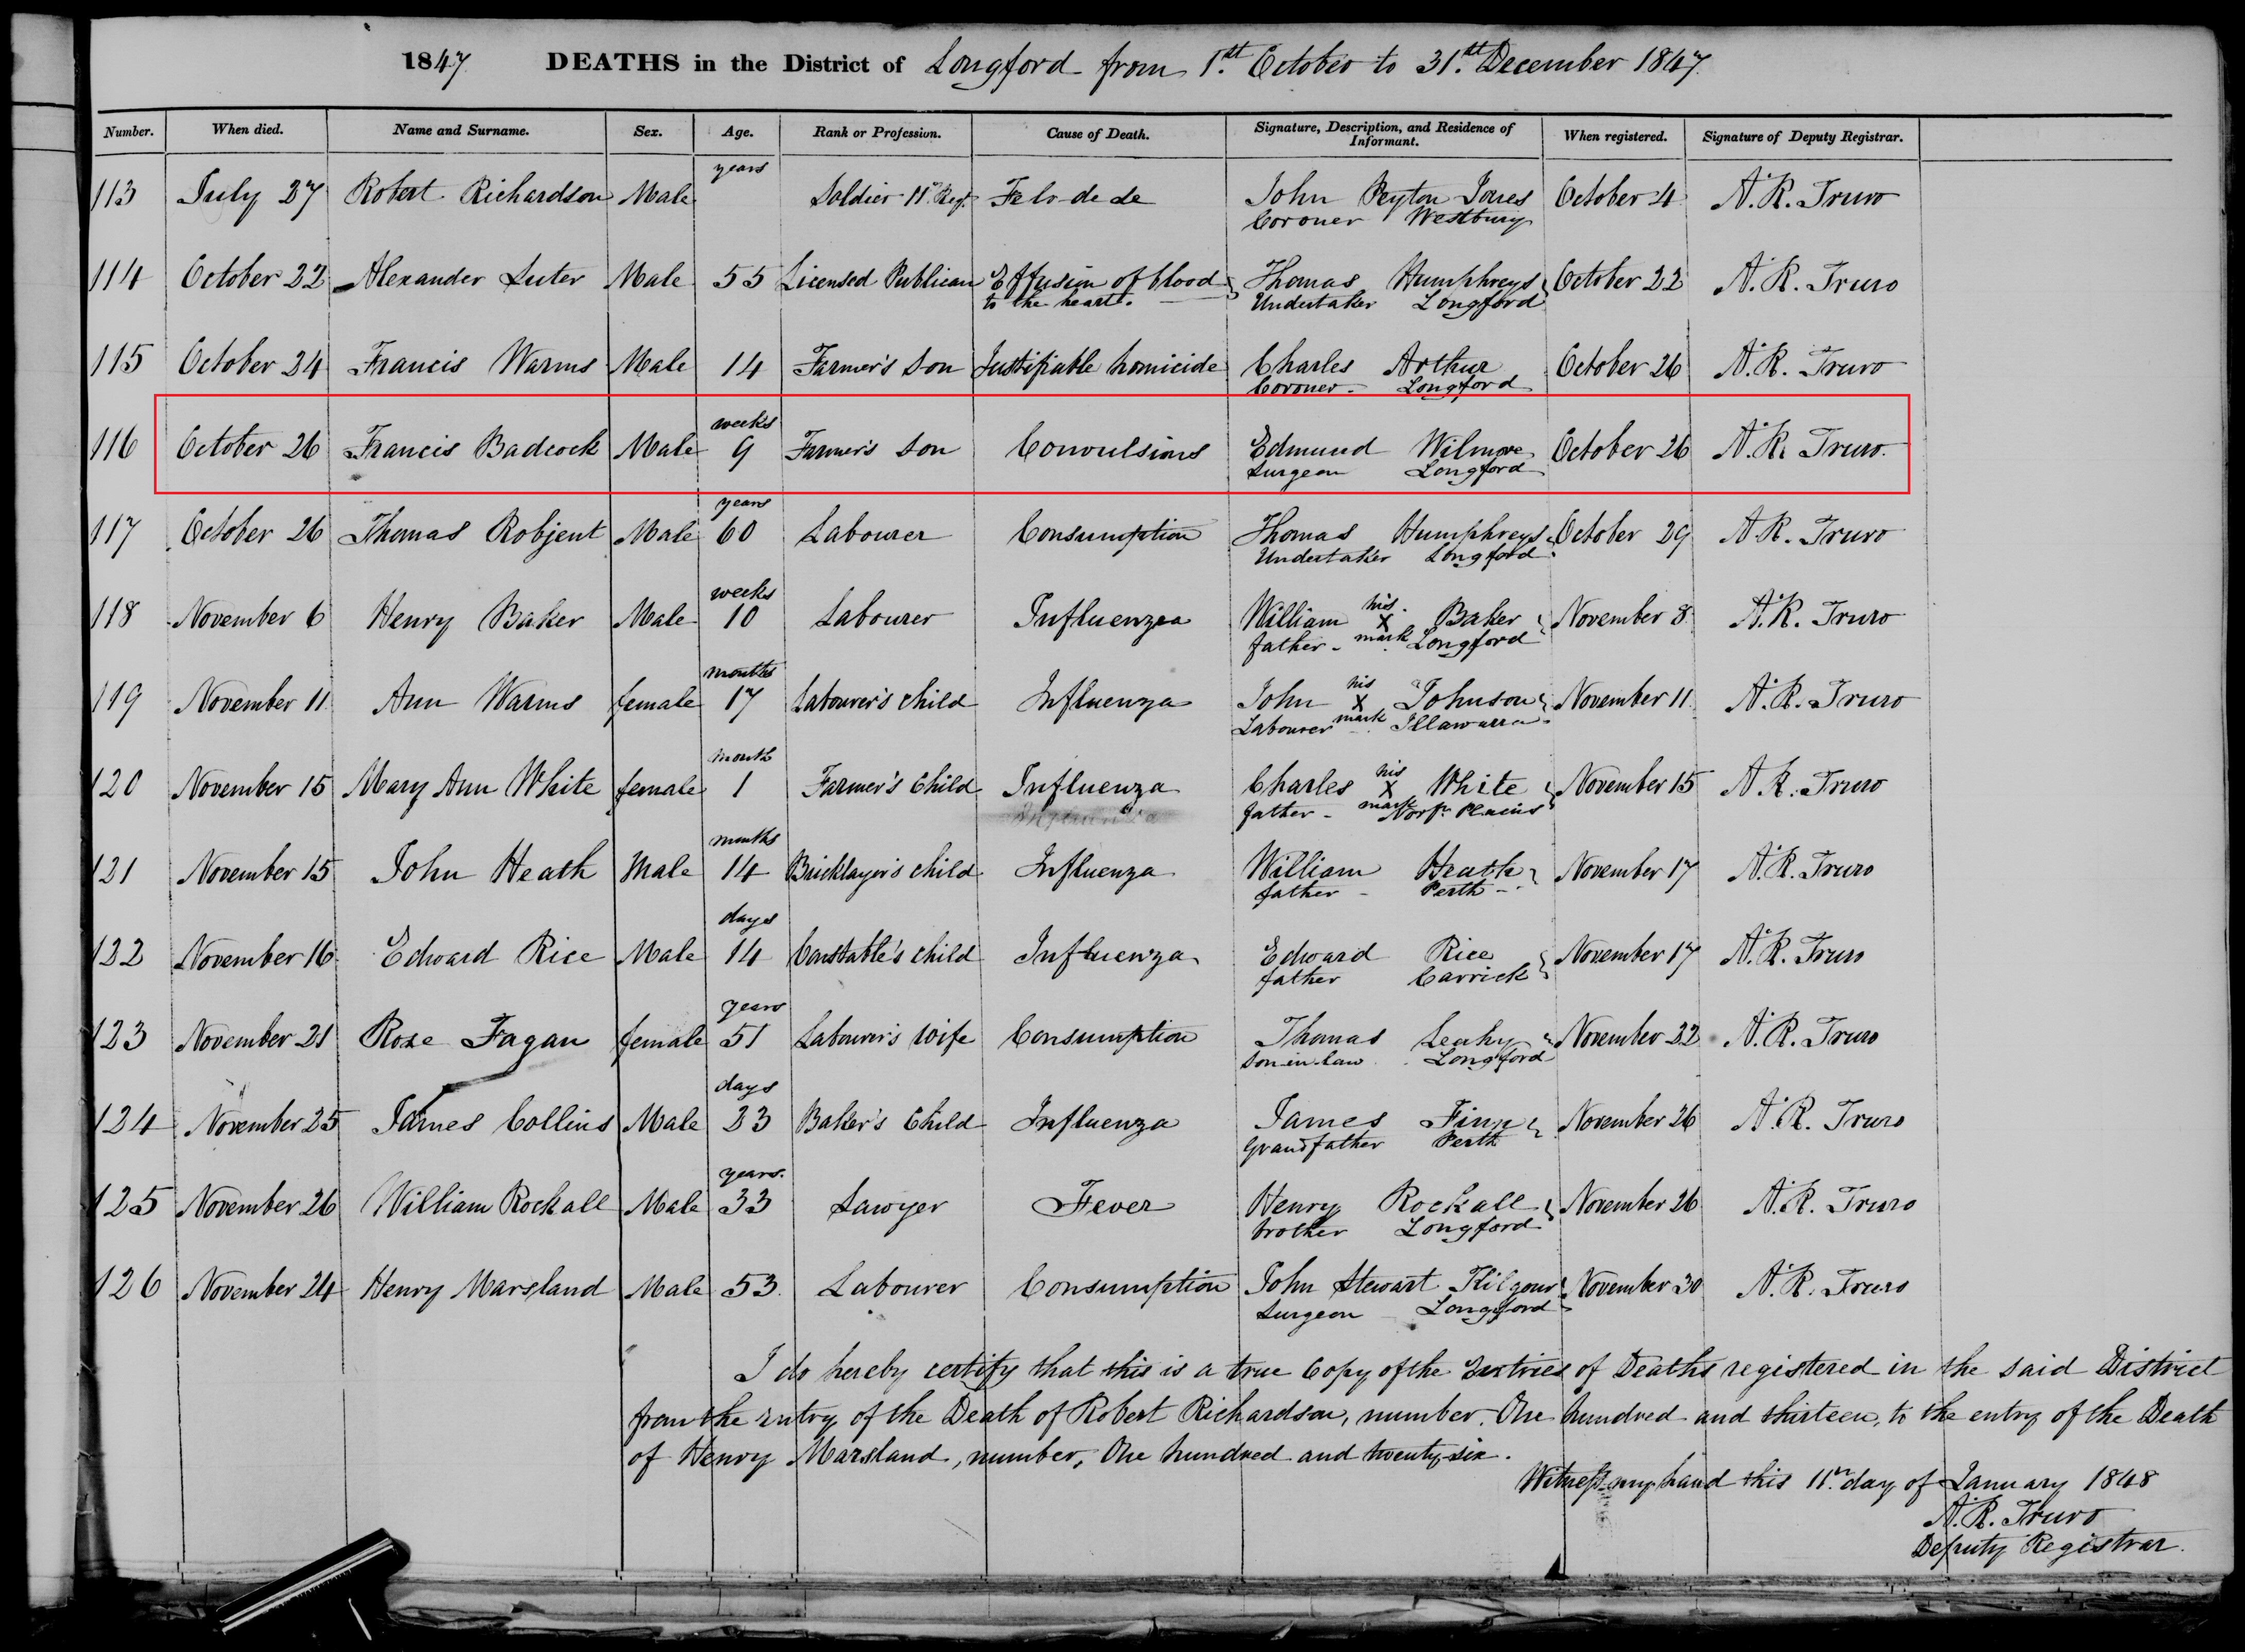 1847 DEATHS in the District of Longford from 1st October to 31st December 1847
Number. When died. Name and Surname. Sex. Age. Rank or Profession. Cause of Death. Signature, Description, and Residence of Informant. When registered. Signature of Deputy Registrar.
years
113 July 27 Robert Richardson Male Soldier 11th Regt Felo de Se John Peyton Jones October 4 A. R. Truro
Coroner Westbury
114 October 22 Alexander Suter Male 55 Licensed Publican Effusion of blood Thomas Humphreys October 22 A. R. Truro
to the heart. Undertaker Longford
115 October 24 Francis Warms Male 14 Farmer's Son Justifiable homicide Charles Arthur October 26 A. R. Truro
Coroner Longford
weeks
116 October 26 Francis Badcock Male 9 Farmer's Son Convulsions Edmund Wilmore October 26 A. R. Truro
Surgeon Longford
years
117 October 26 Thomas Robjent Male 60 Labourer Consumption Thomas Humphreys October 29 A. R. Truro
Undertaker Longford
weeks
118 November 6 Henry Baker Male 10 Labourer Influenza William his X mark Baker November 8 A. R. Truro
father Longford
months
119 November 11 Ann Warms female 17 Labourer's child Influenza John his X mark Johnson November 11 A. R. Truro
Labourer Illawarra
month
120 November 15 Mary Ann White female 1 Farmer's Child Influenza Charles his X mark White November 15 A. R. Truro
father Norf. Plains
months
121 November 15 John Heath Male 14 Bricklayer's child Influenza William Heath November 17 A. R. Truro
father Perth
days
122 November 16 Edward Rice Male 14 Constable's child Influenza Edward Rice November 17 A. R. Truro
father Carrick
years
123 November 21 Rose Fagan female 51 Labourer's Wife Consumption Thomas Leahy November 22 A. R. Truro
Son-in-law Longford
days
124 November 25 James Collins Male 23 Baker's Child Influenza James Finn November 26 A. R. Truro
Grandfather Perth
years
125 November 26 William Rockall Male 33 Sawyer Fever Henry Rockall November 26 A. R. Truro
brother Longford
126 November 24 Henry Marsland Male 53 Labourer Consumption John Stewart Kilgour November 30 A. R. Truro
Surgeon Longford
I do hereby certify that this is a true Copy of the Entries of Deaths registered in the said District
from the entry of the Death of Robert Richardson, number, One hundred and thirteen, to the entry of the Death
of Henry Marsland, number, One hundred and twenty-six.
Witness my hand this 11th day of January 1848
A. R. Truro
Deputy Registrar.